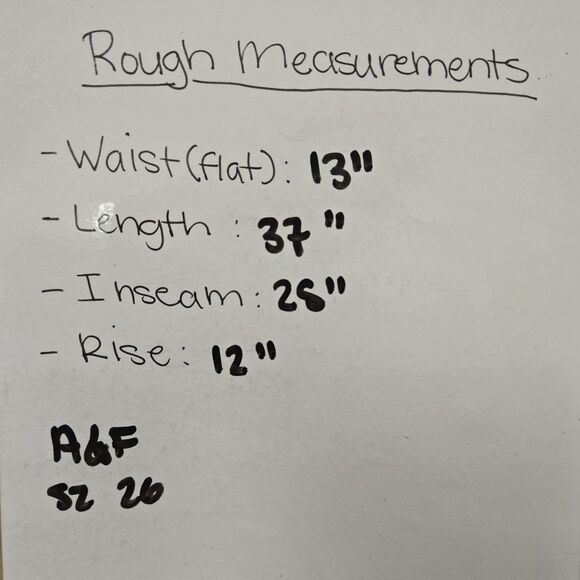 Rough Measurements
- Waist (flat): 13"
- Length : 37"
- Inseam: 28"
- Rise: 12"
A&F
sz 26